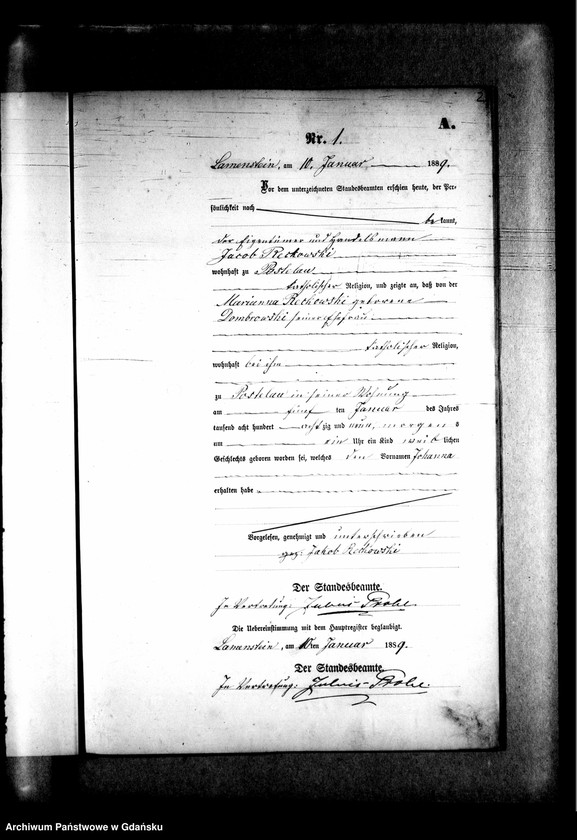 2
A.
Nr. 1.
Lamenstein, am 10. Januar 1889.
Vor dem unterzeichneten Standesbeamten erschien heute, der Per-
sönlichkeit nach
be kannt,
der Eigentümer und Handelsmann
Jacob Reckowski
wohnhaft zu Postelau
katholischer Religion, und zeigte an, daß von der
Marianna Reckowski geborene
Dombrowski seiner Ehefrau
katholischer Religion,
wohnhaft bei ihm
zu Postelau in seiner Wohnung
am fünf ten Januar des Jahres
tausend acht hundert acht zig und neun, morgens
um ein Uhr ein Kind weib lichen
Geschlechts geboren worden sei, welches den Vornamen Johanna
erhalten habe
Vorgelesen, genehmigt und unterschrieben
gez: Jakob Reckowski
Der Standesbeamte.
In Vertretung: Julius Probe.
Die Uebereinstimmung mit dem Hauptregister beglaubigt.
Lamenstein, am 10ten Januar 1889.
Der Standesbeamte.
In Vertretung: Julius Probe.
Archiwum Państwowe w Gdańsku